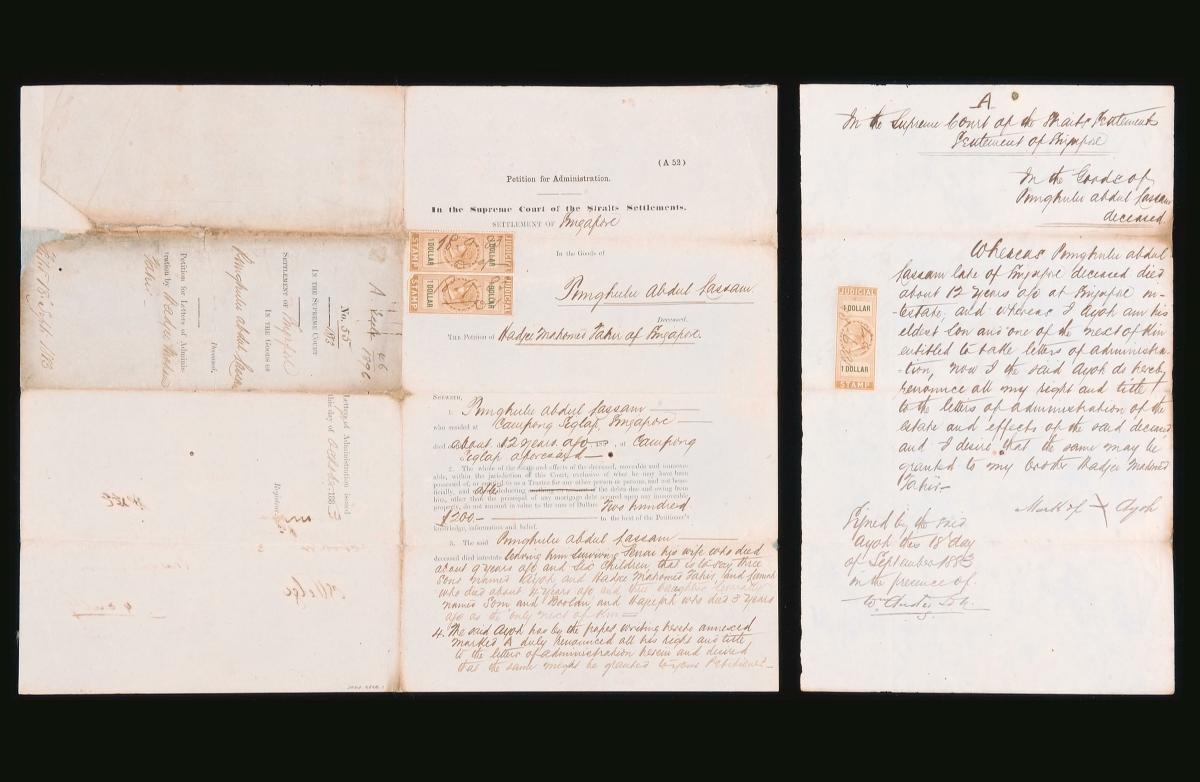 (A 52)
Petition for Administration.
In the Supreme Court of the Straits Settlements.
SETTLEMENT OF Singapore
JUDICIAL
1 DOLLAR
1 DOLLAR
STAMP
18.9.83
JUDICIAL
1 DOLLAR
1 DOLLAR
STAMP
In the Goods of
Punghulu Abdul Lassam
Deceased.
THE Petition of Hadjee Mahomed Tahir of Singapore.
SHEWETH,
1. Punghulu Abdul Lassam
who resided at Campong Seglap, Singapore
died about 12 years ago 187 , at Campong
Seglap aforesaid
2. The whole of the estate and effects of the deceased, movable and immov-
able, within the jurisdiction of this Court, exclusive of what he may have been
possessed of, or entitled to as a Trustee for any other person or persons, and not bene-
ficially, and after deducting the debts due and owing from
him, other than the principal of any mortgage debt secured upon any immoveable
property, do not amount in value to the sum of Dollars Two hundred
$200.- to the best of the Petitioner's
knowledge, information and belief.
3. The said Punghulu Abdul Lassam
deceased died intestate leaving him surviving his wife who died
about 9 years ago and six children, that is to say three
sons named Ayoh and Hadjee Mahomed Tahir and
who died about years ago and three daughters
names Som and Boolan and who died 3 years
ago as the only next of kin
4. The said Ayoh has by the paper writing hereto annexed
marked A duly renounced all his right and title
to the letters of administration herein and desired
that the same might be granted to your Petitioner.
No. 55
188
IN THE SUPREME COURT
SETTLEMENT OF Singapore
IN THE GOODS OF
Punghulu Abdul Lassam
Deceased.
Petition for Letters of Adminis-
tration by Hadjee Mahomed
Tahir
Filed 18 Sept 1883
Letters of Administration issued
this day of October 1883
Registrar.
A
In the Supreme Court of the Straits Settlements
Settlement of Singapore
In the Goods of
Punghulu Abdul Lassam
deceased
JUDICIAL
1 DOLLAR
1 DOLLAR
STAMP
Whereas Punghulu Abdul
Lassam late of Singapore deceased died
about 12 years ago at Singapore in-
-testate, and whereas I Ayoh am his
eldest son and one of the next of kin
entitled to take letters of administra-
-tion, now I the said Ayoh do hereby
renounce all my right and title
to the letters of administration of the
estate and effects of the said deceased
and I desire that the same may be
granted to my brother Hadjee Mahomed
Tahir
Mark of X Ayoh
Signed by the said
Ayoh this 18 day
of September 1883
in the presence of